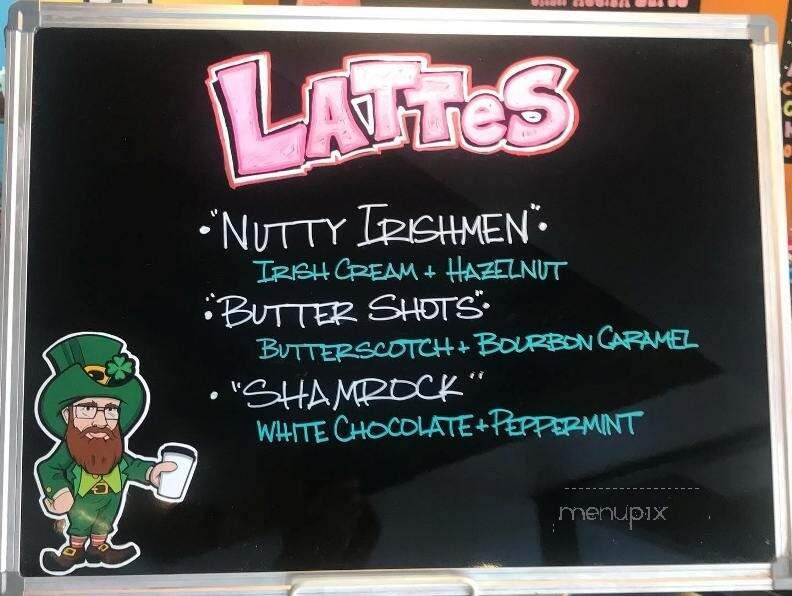 LATTES
• "NUTTY IRISHMEN" •
IRISH CREAM + HAZELNUT
• "BUTTER SHOTS" •
BUTTERSCOTCH + BOURBON CARAMEL
• "SHAMROCK"
WHITE CHOCOLATE + PEPPERMINT
menupix